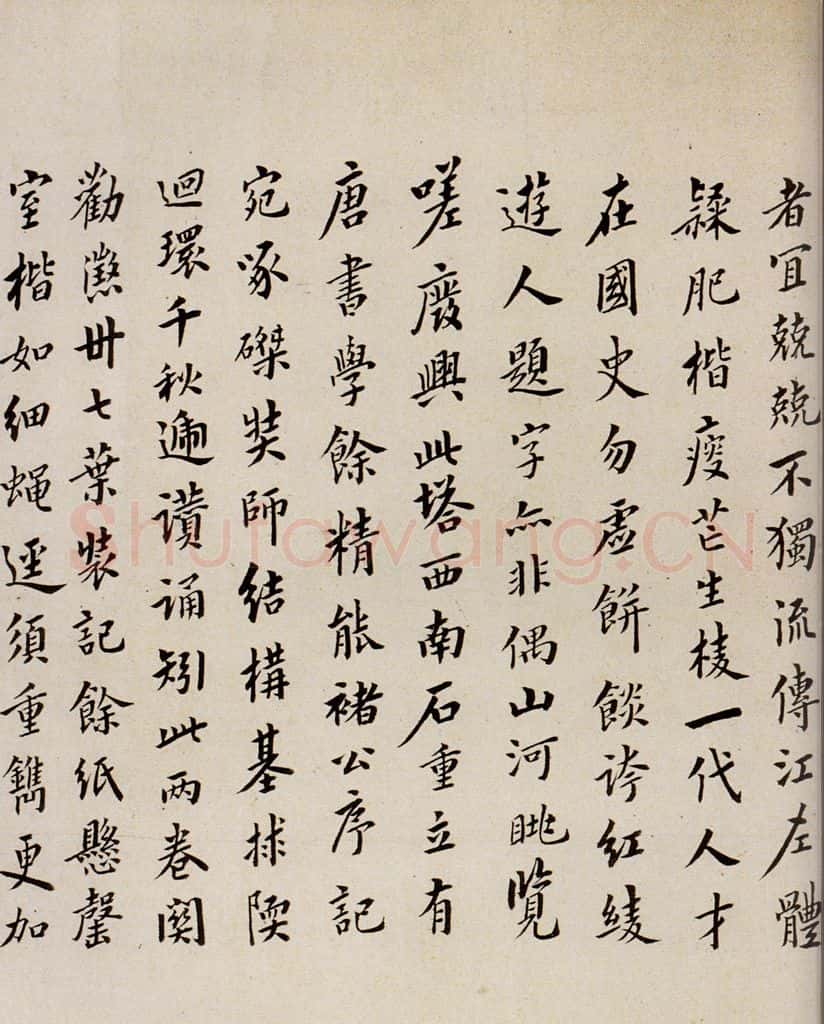 者宜兢兢不獨流傳江左體
肥楷瘦芒生棱一代人才
在國史勿虛餅餤誇紅綾
遊人題字亦非偶山河眺覽
嗟廢興此塔西南石重立有
唐書學餘精能褚公序記
宛啄磔奘師結構基捄陾
迴環千秋遍讚誦矧此兩卷關
勸懲卅七葉裝記餘紙懸罄
室楷如細蠅逕須重鐫更加
Shufawang.CN